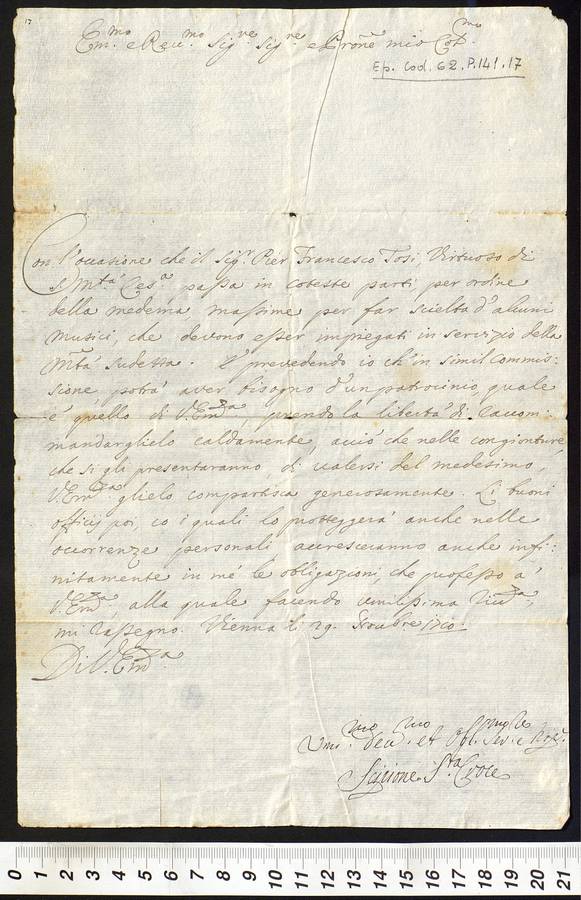 17
Em.mo e Rev.mo Sig.re Sig.re e Pròne mio Col.mo
Ep. Cod. 62. P. 141. 17
Con l'occasione che il Sig.r Pier Francesco Tosi, Virtuoso di
S. M.tà Ces.a passa in coteste parti per ordine
della medema, massime per far scielta d'alcuni
Musici, che devono esser impiegati in servizio della
M.tà sudetta. E prevedendo io ch'in simil commis-
sione potrà aver bisogno d'un patrocinio quale
e' quello di V. Em.za, prendo la libertà di raccom-
mandarglielo caldamente, acciò che nelle congionture,
che si gli presentaranno, di valersi del medesimo,
V. Em.za glielo compartisca generosamente. Li buoni
officij poi, co i quali lo protteggerà anche nelle
occorrenze personali accresceranno anche infi-
nitamente in mé le obligazioni, che professo à
V. Em.za, alla quale facendo umilissima
mi rassegno. Vienna li 29. 1710.
Di V. Em.za
Um.mo Dev.mo et Obl.
Scipione S.ta Croce
0 1 2 3 4 5 6 7 8 9 10 11 12 13 14 15 16 17 18 19 20 21